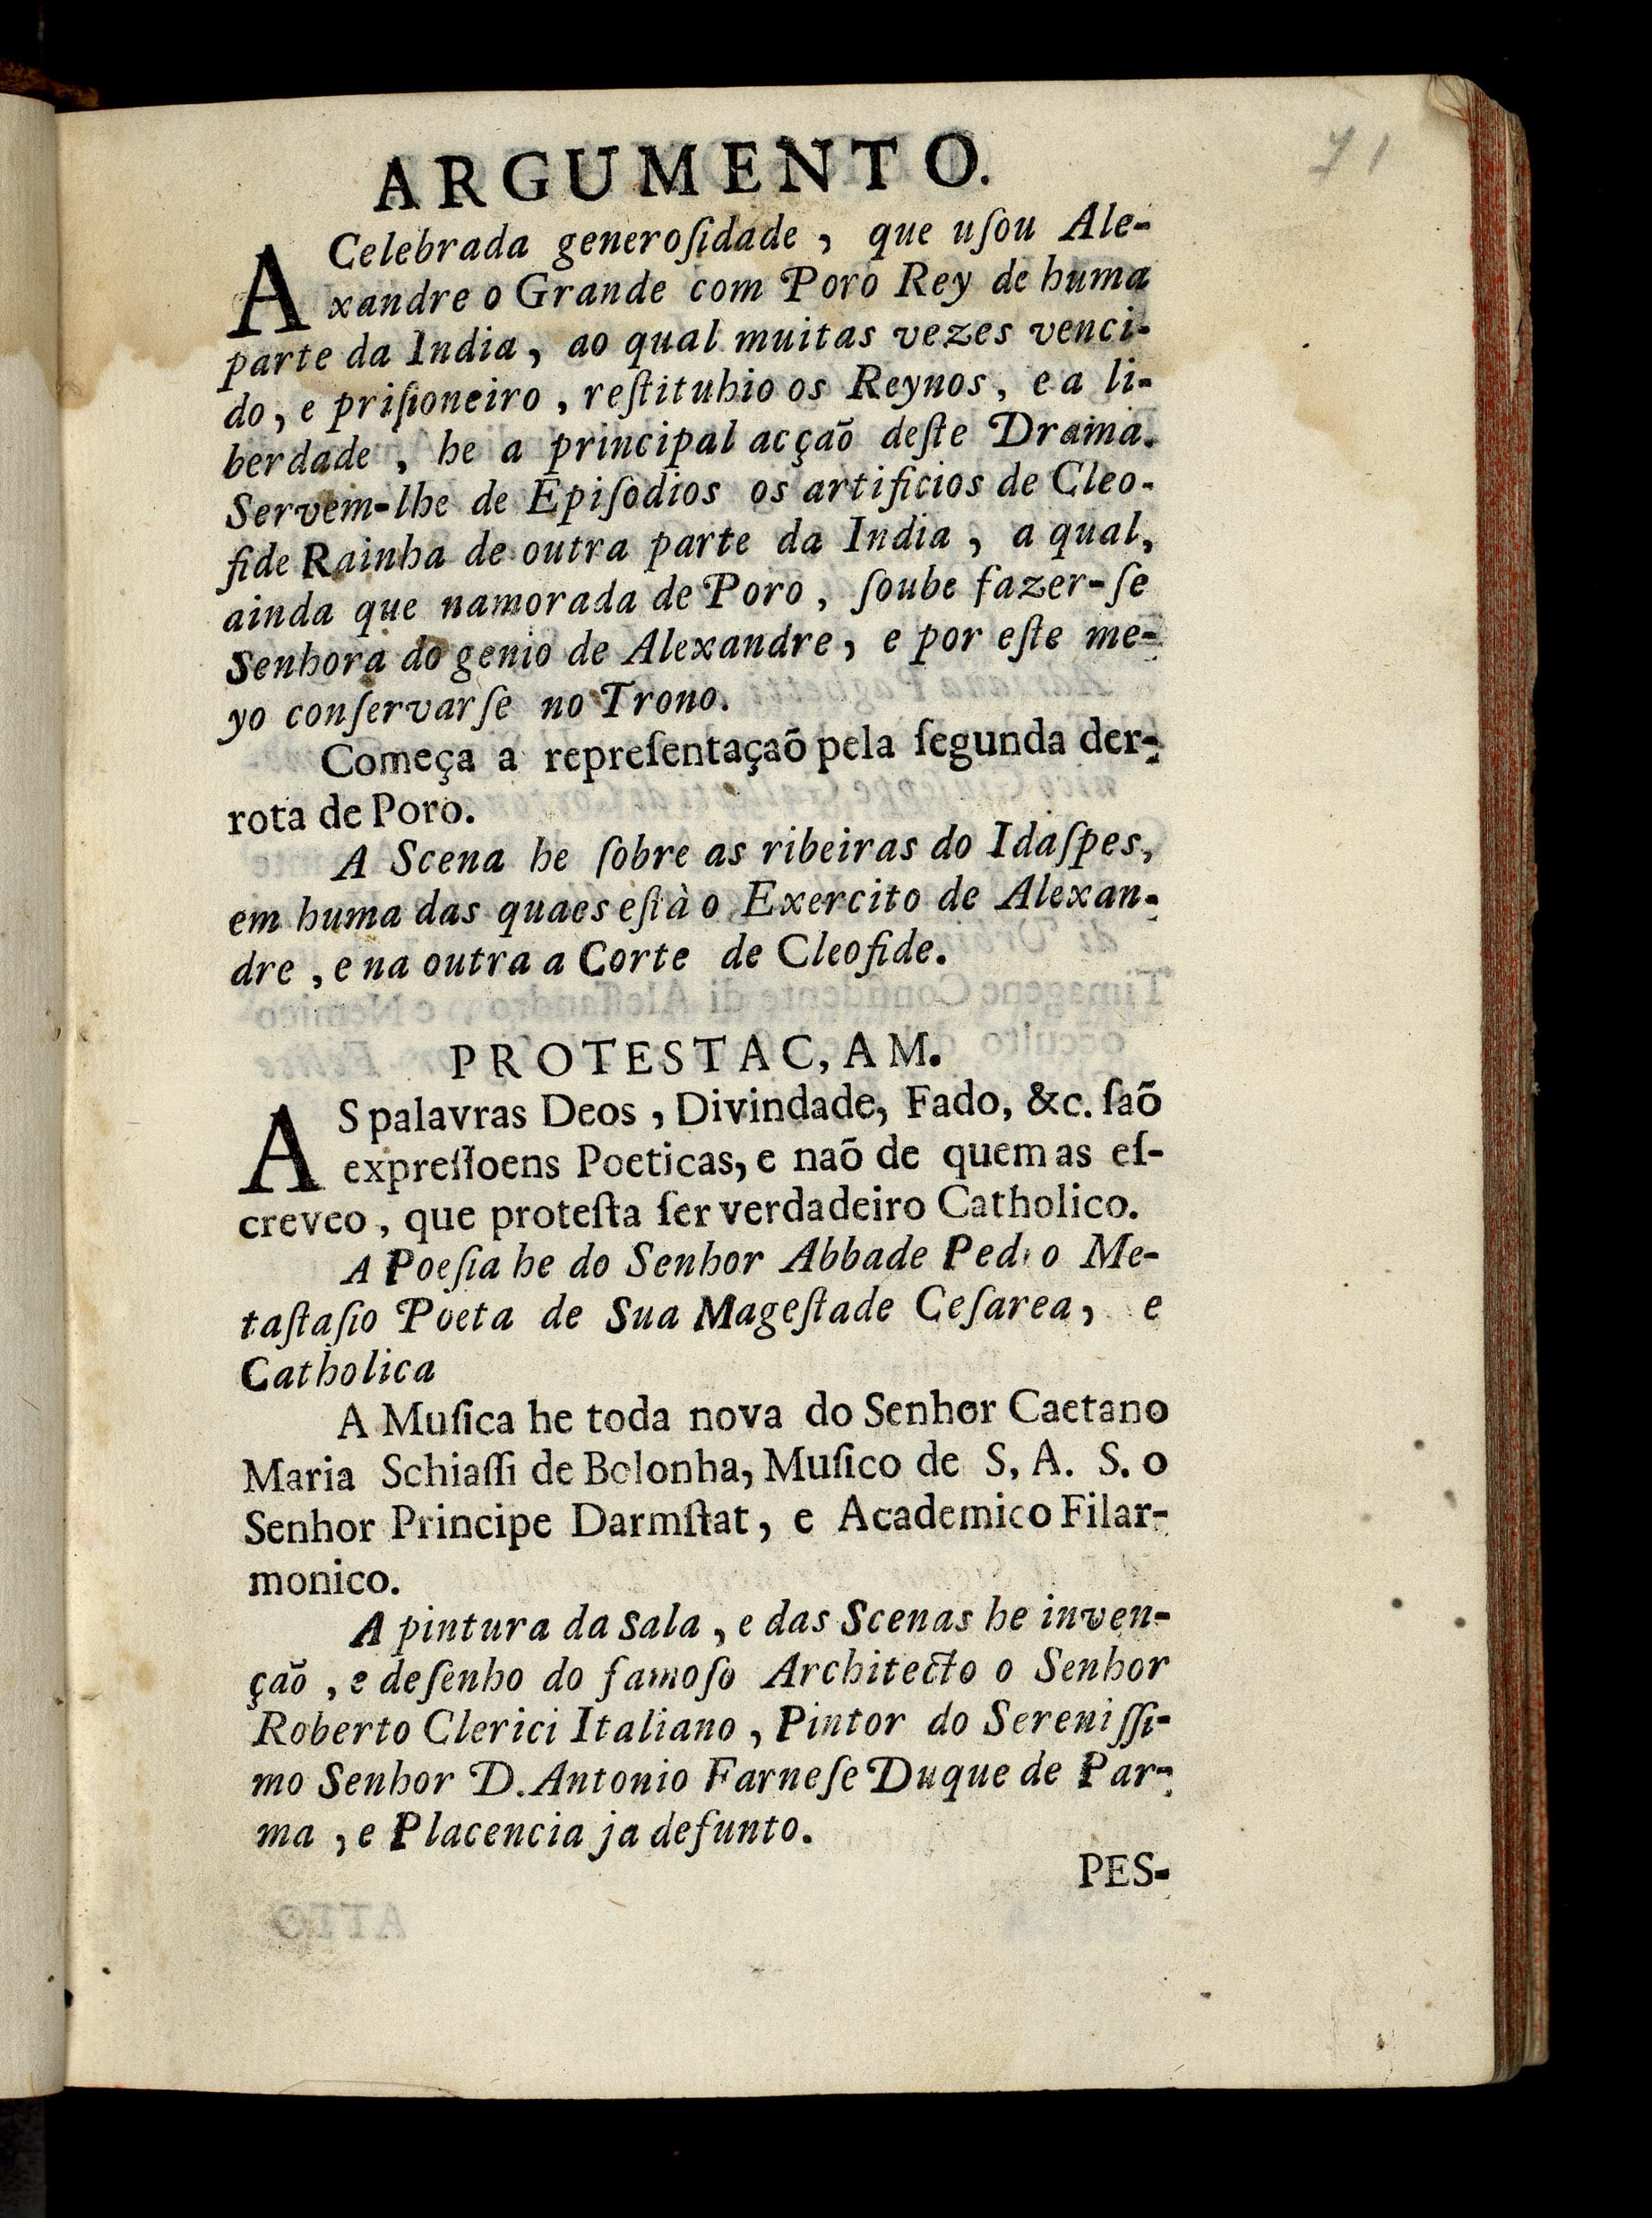 71
ARGUMENTO.
A Celebrada generoſidade, que uſou Ale-
xandre o Grande com Poro Rey de huma
parte da India, ao qual muitas vezes venci-
do, e priſioneiro, reſtituhio os Reynos, e a li-
berdade, he a principal acçaõ deſte Drama.
Servem-lhe de Epiſodios os artificios de Cleo-
fide Rainha de outra parte da India, a qual,
ainda que namorada de Poro, ſoube fazer-ſe
Senhora do genio de Alexandre, e por eſte me-
yo conſervarſe no Trono.
Começa a repreſentaçaõ pela ſegunda der-
rota de Poro.
A Scena he ſobre as ribeiras do Idaſpes,
em huma das quaes eſtà o Exercito de Alexan-
dre, e na outra a Corte de Cleofide.
PROTESTAC,AM.
AS palavras Deos, Divindade, Fado, &c. ſaõ
expreſſoens Poeticas, e naõ de quem as eſ-
creveo, que proteſta ſer verdadeiro Catholico.
A Poeſia he do Senhor Abbade Pedro Me-
taſtaſio Poeta de Sua Mageſtade Ceſarea, e
Catholica
A Muſica he toda nova do Senhor Caetano
Maria Schiaſſi de Bolonha, Muſico de S. A. S. o
Senhor Principe Darmſtat, e Academico Filar-
monico.
A pintura da Sala, e das Scenas he inven-
çaõ, e deſenho do famoſo Architecto o Senhor
Roberto Clerici Italiano, Pintor do Sereniſſi-
mo Senhor D. Antonio Farneſe Duque de Par-
ma, e Placencia ja defunto.
PES-